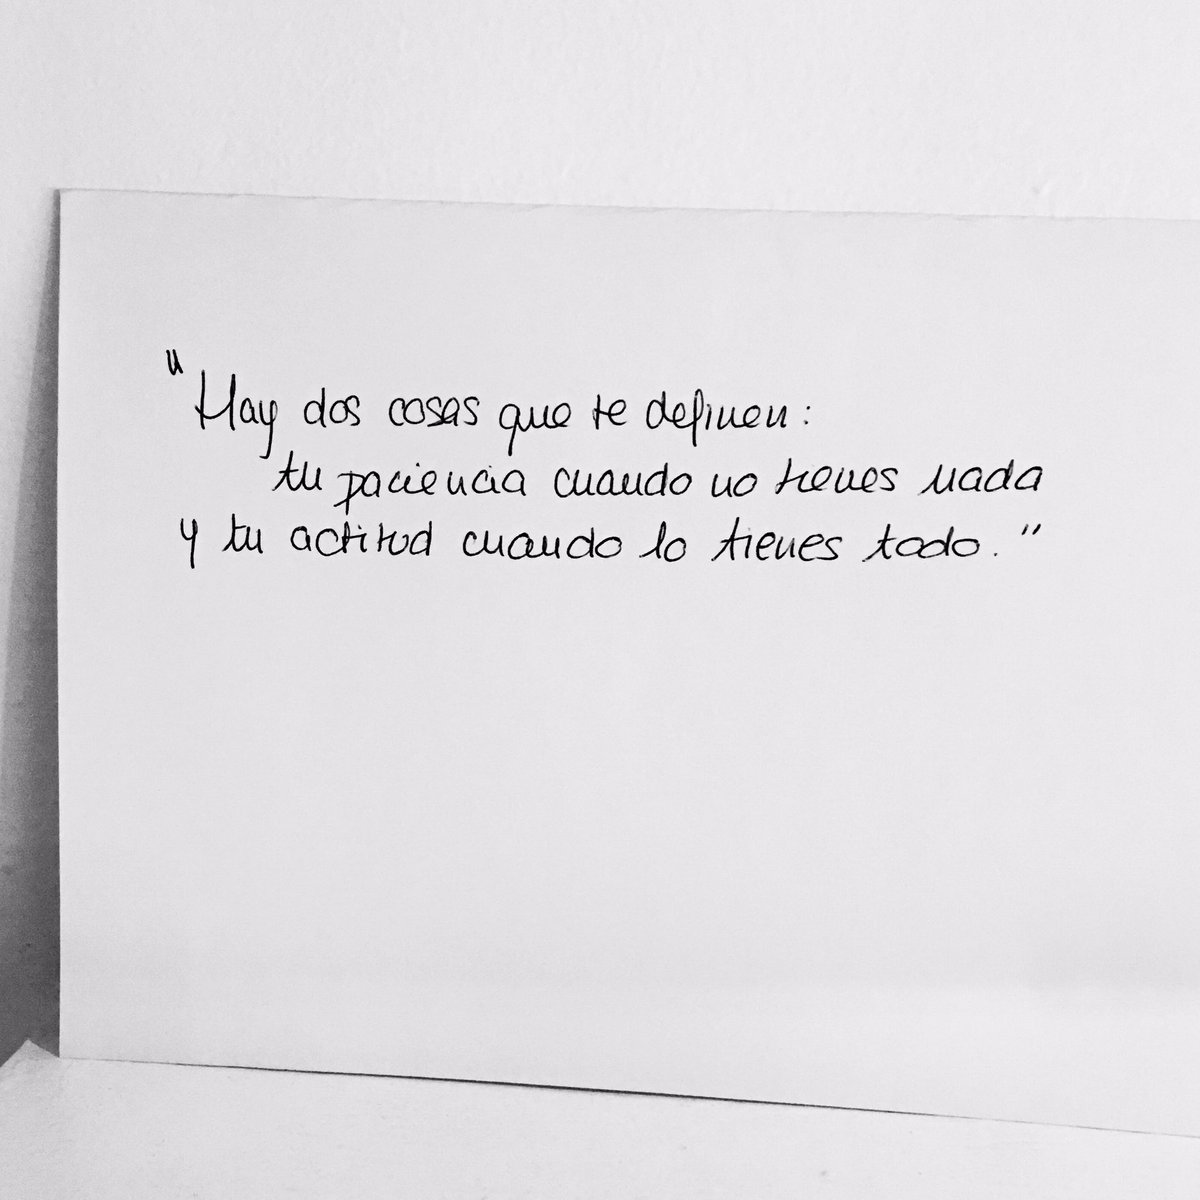 "Hay dos cosas que te definen:
tu paciencia cuando no tienes nada
y tu actitud cuando lo tienes todo."